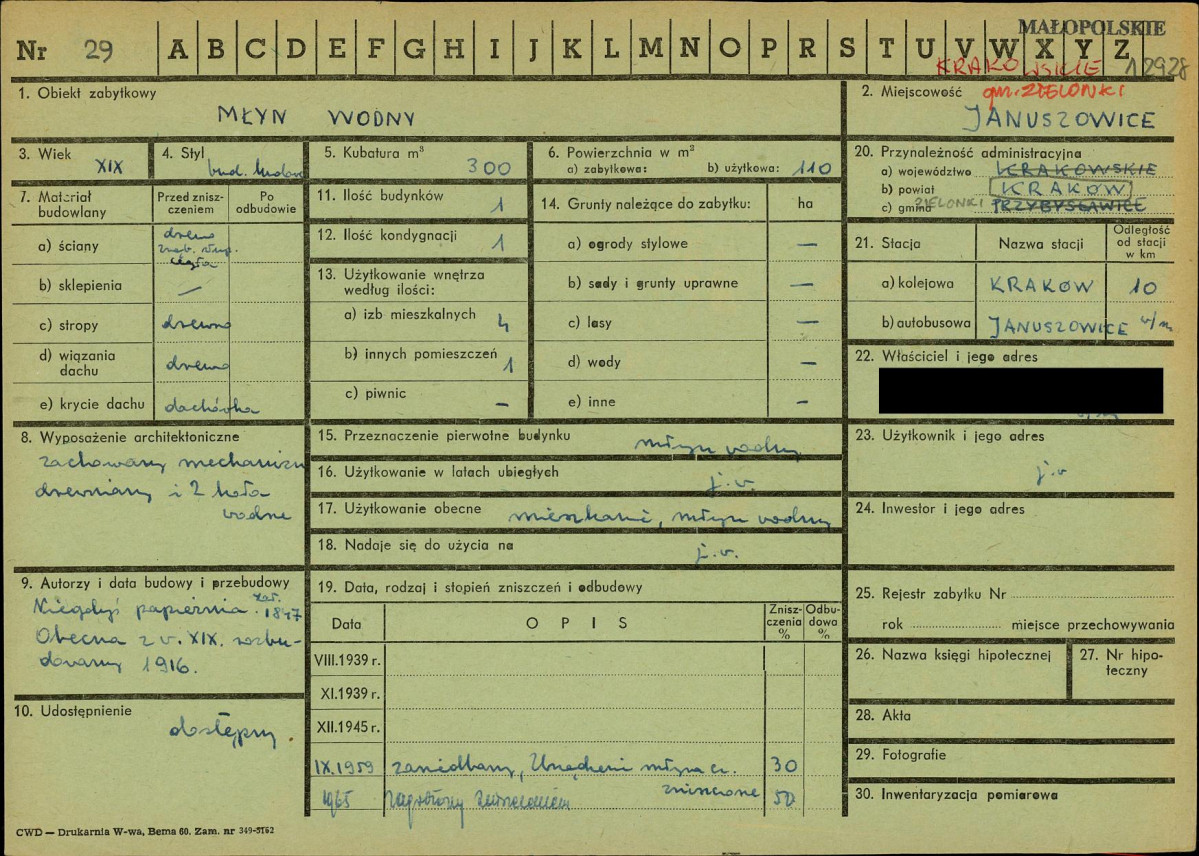 MAŁOPOLSKIE
Nr 29 A B C D E F G H I J K L M N O P R S T U V W X Y Z
KRAKOWSKIE 12928
1. Obiekt zabytkowy
MŁYN WODNY
2. Miejscowość gm. ZIELONKI
JANUSZOWICE
3. Wiek
XIX
4. Styl
bud. ludow
5. Kubatura m³
300
6. Powierzchnia w m²
a) zabytkowa: b) użytkowa: 110
20. Przynależność administracyjna
a) województwo KRAKOWSKIE
b) powiat KRAKÓW
c) gmina ZIELONKI PRZYBYSŁAWICE
7. Materiał budowlany
Przed zniszczeniem
Po odbudowie
a) ściany drewno
cegła
b) sklepienia —
c) stropy drewno
d) wiązania dachu drewno
e) krycie dachu dachówka
11. Ilość budynków 1
12. Ilość kondygnacji 1
13. Użytkowanie wnętrza według ilości:
a) izb mieszkalnych 4
b) innych pomieszczeń 1
c) piwnic —
14. Grunty należące do zabytku: ha
a) ogrody stylowe —
b) sady i grunty uprawne —
c) lasy —
d) wody —
e) inne —
21. Stacja Nazwa stacji Odległość od stacji w km
a) kolejowa KRAKÓW 10
b) autobusowa JANUSZOWICE w/m
22. Właściciel i jego adres
8. Wyposażenie architektoniczne
zachowany mechanizm
drewniany i 2 koła
wodne
15. Przeznaczenie pierwotne budynku młyn wodny
16. Użytkowanie w latach ubiegłych j.w.
17. Użytkowanie obecne mieszkanie, młyn wodny
18. Nadaje się do użycia na j.w.
23. Użytkownik i jego adres
j.w
24. Inwestor i jego adres
9. Autorzy i data budowy i przebudowy
Niegdyś papiernia zał. 1847
Obecna z w. XIX. rozbu-
dowany 1916.
10. Udostępnienie
dostępny.
19. Data, rodzaj i stopień zniszczeń i odbudowy
Data OPIS Zniszczenia % Odbudowa %
VIII.1939 r.
XI.1939 r.
XII.1945 r.
IX.1959 zaniedbany, Urządzeni młyna cz. 30
zniszczone
1965 zagrożony zawaleniem 50
25. Rejestr zabytku Nr
rok miejsce przechowywania
26. Nazwa księgi hipotecznej
27. Nr hipoteczny
28. Akta
29. Fotografie
30. Inwentaryzacja pomiarowa
CWD — Drukarnia W-wa, Bema 60. Zam. nr 349-5162